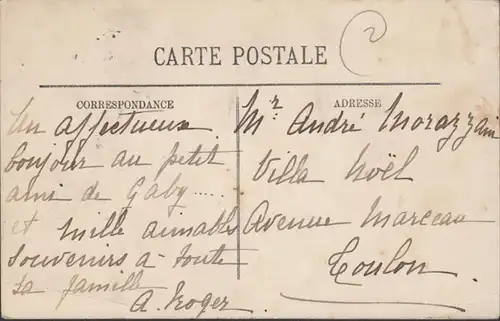 2
CARTE POSTALE
CORRESPONDANCE
Un affectueux
bonjour au petit
ami de Gaby....
et mille aimables
souvenirs à toute
sa famille
A. Roger
ADRESSE
Mr. André Morazzani
Villa Noël
Avenue Marceau
Toulon